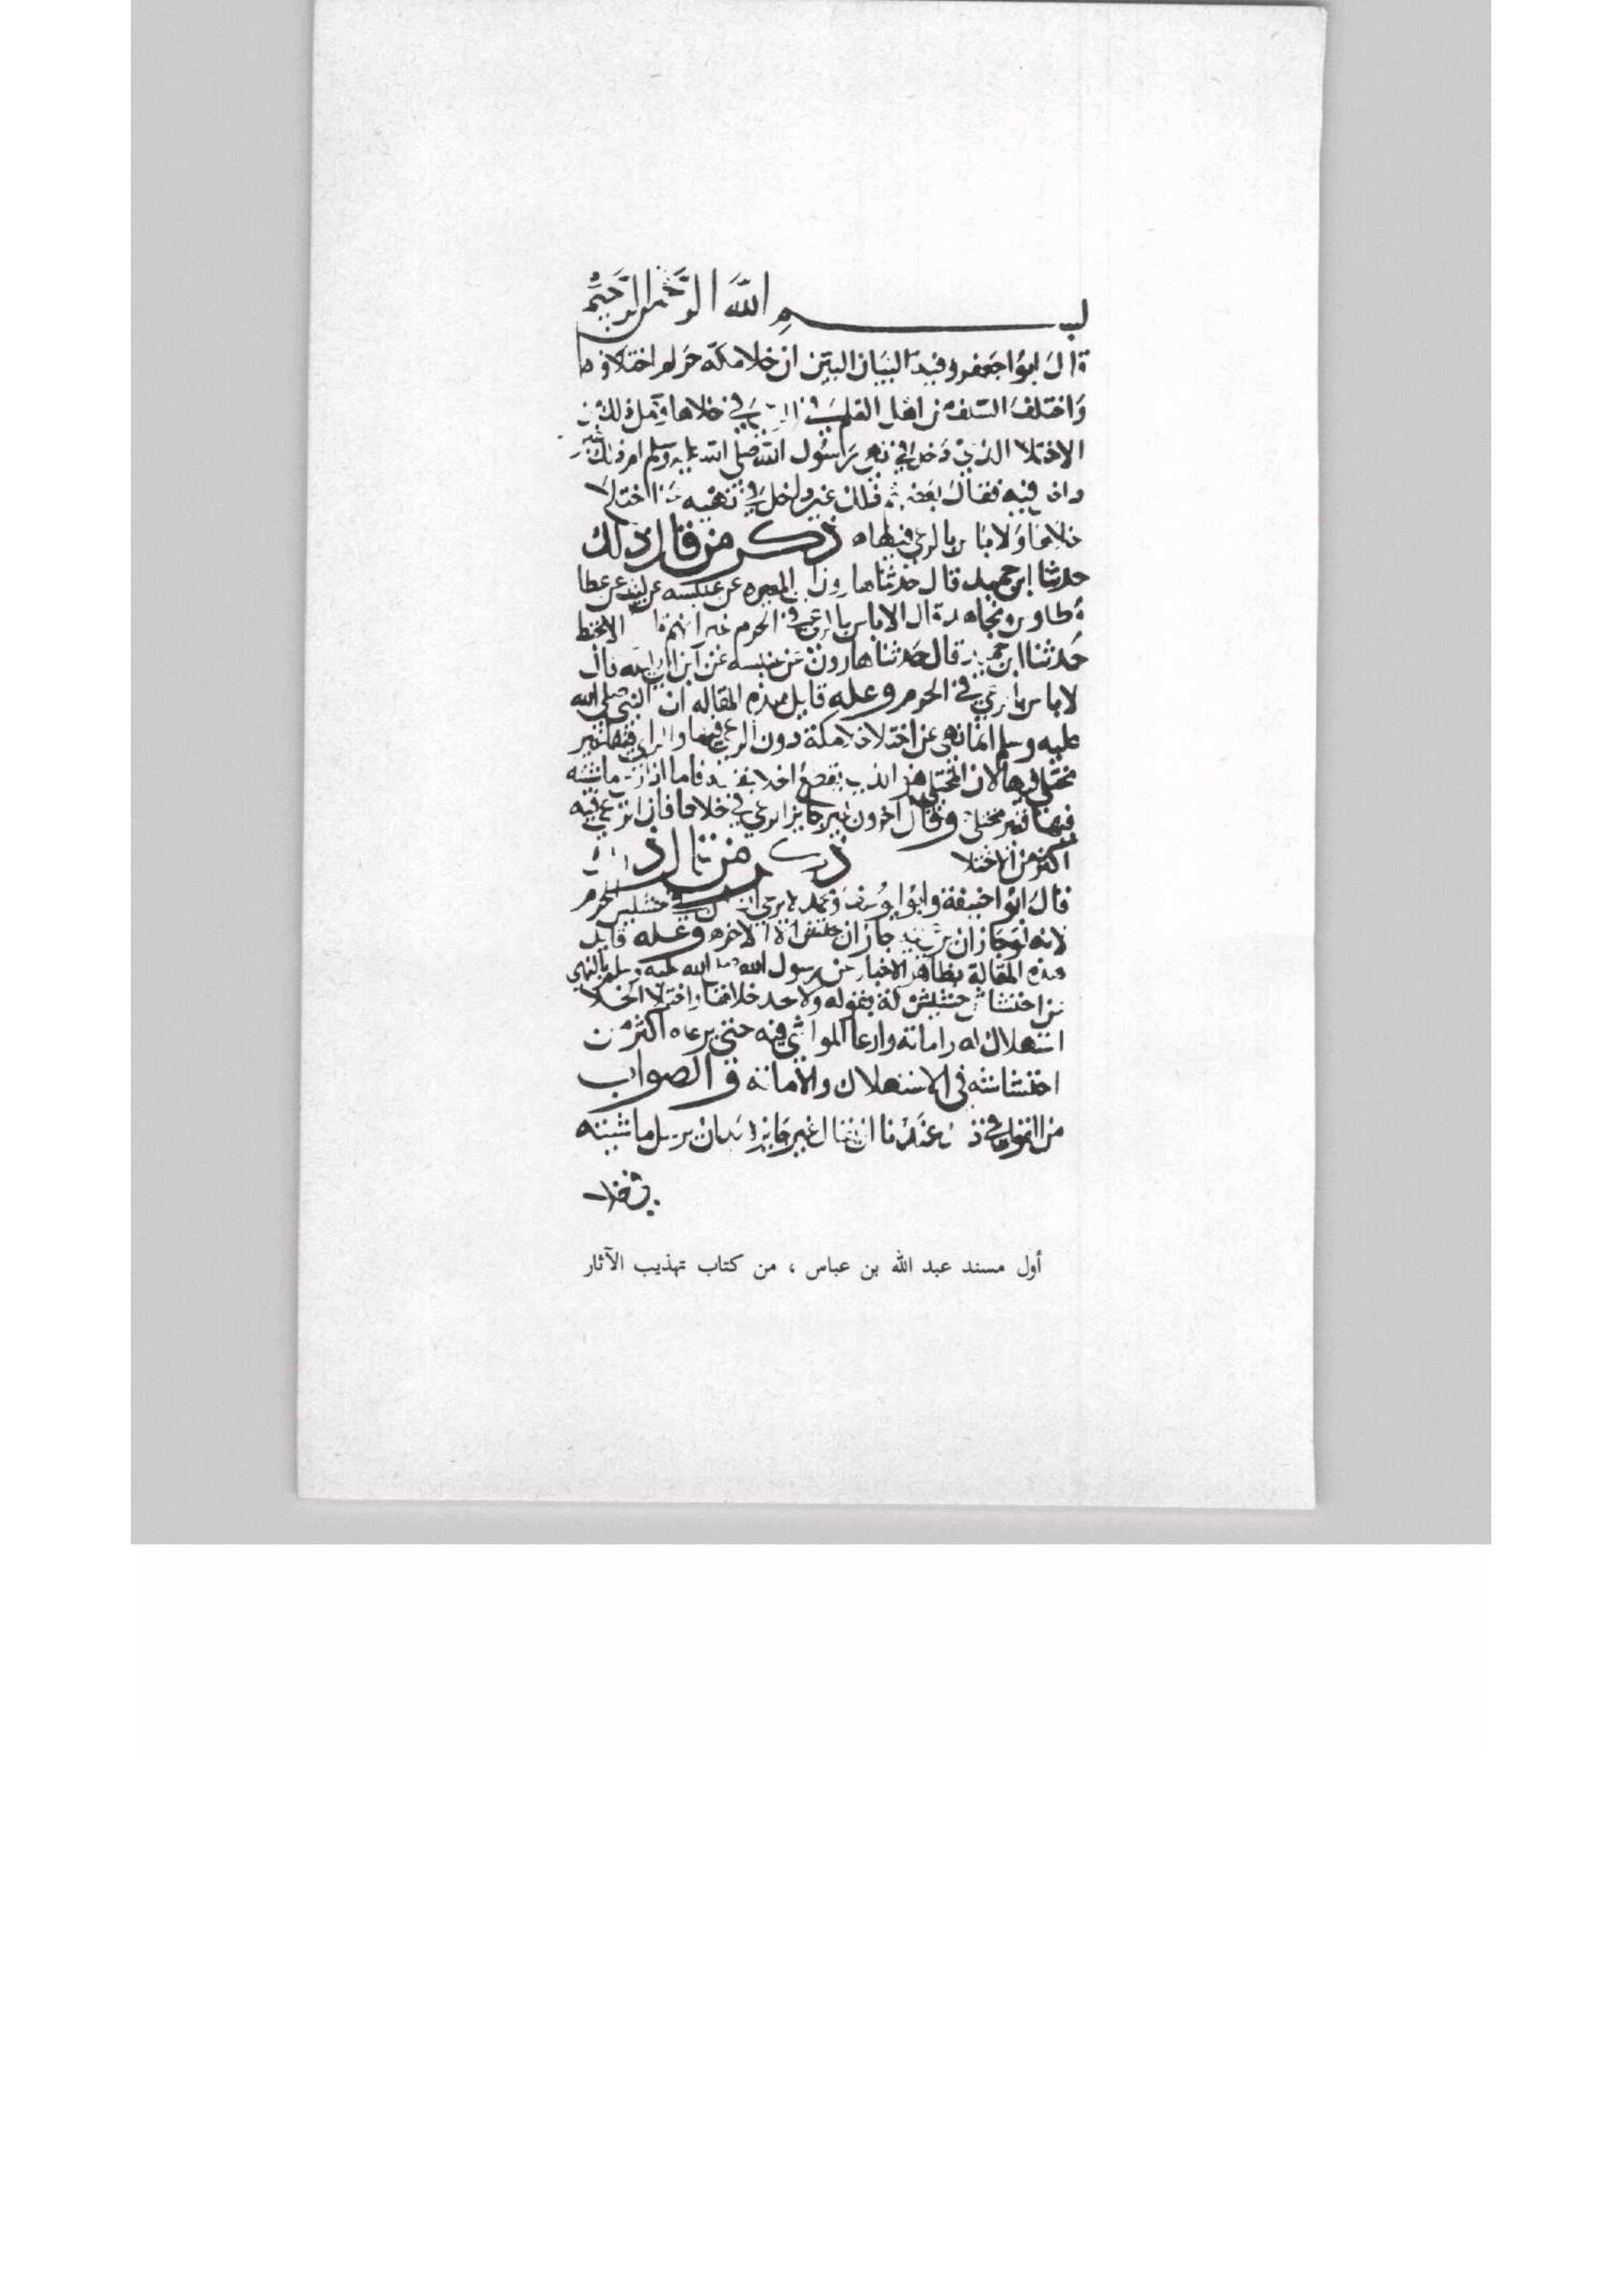 بسم الله الرحمن الرحيم
قال ابوا جعفر وفيه البيان البين ان خلا مكه حرام اختلاوه
واختلف السلف من اهل العلم في في خلاها وهل ذلك من
الاختلا الذي دخل في نهي رسول الله صلى الله عليه وسلم ام
فيه فقال بعضهم ذلك غير داخل في نهيه عن اختلا
خلاها ولا باس بالرعي فيها ذكر من قال ذلك
حدثنا ابن حميد قال حدثنا هارون بن المغيره عن عنبسه عن ليث عن عطا
وطاوس ومجاهد قال لا باس بالرعي في الحرم غير انهم لا يخبط
حدثنا ابن حميد قال حدثنا هارون عن عنبسه عن ابن ابي قال
لا باس ان يرعي في الحرم وعله قايل هذه المقاله ان النبي صلى الله
عليه وسلم انما نهي عن اختلا خلا مكة دون الرعي فيها والراعي فيها غير
مختلي فيها لان المختلي هو الذي يقطع الخلا بنفسه فاما اذا ماشيته
فيها فغير مختلي وقال اخرون غير جايز الرعي في خلاها فان الرعي فيه
اكثر من الاختلا ذكر من قال ذلك
قال ابوا حنيفة وابوا يوسف ومحمد لا يرعي في حشيش الحرم
لانه لو جاز ان يرعي جاز ان يحتش الا الاذخر وعله قايل
هذه المقالة بظاهر الاخبار عن رسول الله صلى الله عليه وسلم بالنهي
عن احتشاش حشيش مكة بقوله ولا يختلا خلاها واختلا الخلا
استهلاك له واماتة وارعا المواشي فيه حتى يرعاه اكثر من
احتشاشه في الاستهلاك والاماتة والصواب
من القول في ذلك عندنا ان يقال غير جايز ان يرسل ماشيته
في خلا
أول مسند عبد الله بن عباس ، من كتاب تهذيب الآثار